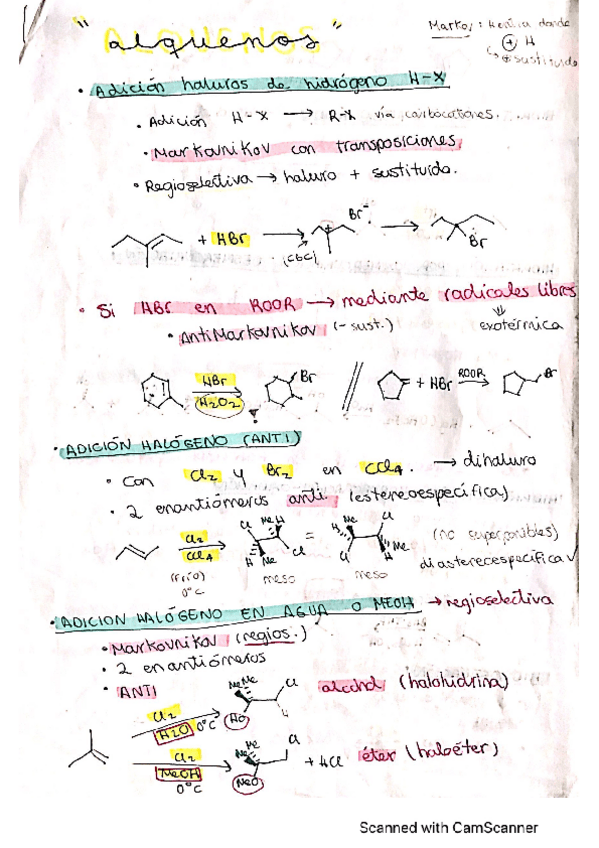 "alquenos"
· Adición haluros de hidrógeno H-X
· Adición H-X → R-X vía carbocationes.
· Markovnikov con transposiciones
· Regioselectiva → haluro + sustituido.
+ HBr
Br⁻
(CBC)
Br
· Si HBr en ROOR → mediante radicales libres
· AntiMarkovnikov (- sust.)
exotérmica
HBr
H₂O₂
Br
+ HBr
ROOR
Br
· ADICIÓN HALÓGENO (ANTI)
· Con Cl₂ y Br₂ en CCl₄. → dihaluro
· 2 enantiómeros anti (estereoespecífica)
Cl₂
CCl₄
(frío)
0°C
Cl Me H
H Me Cl
meso
=
H Me Cl
Cl H Me
meso
(no superponibles)
diastereoespecífica
· ADICION HALÓGENO EN AGUA O MEOH → regioselectiva
· Markovnikov (regios.)
· 2 enantiómeros
· ANTI
Cl₂
H₂O 0°C
Me Me Cl
HO
alcohol (halohidrina)
Cl₂
MeOH
0°C
Me Me Cl
MeO
+ HCl éter (haloéter)
Scanned with CamScanner